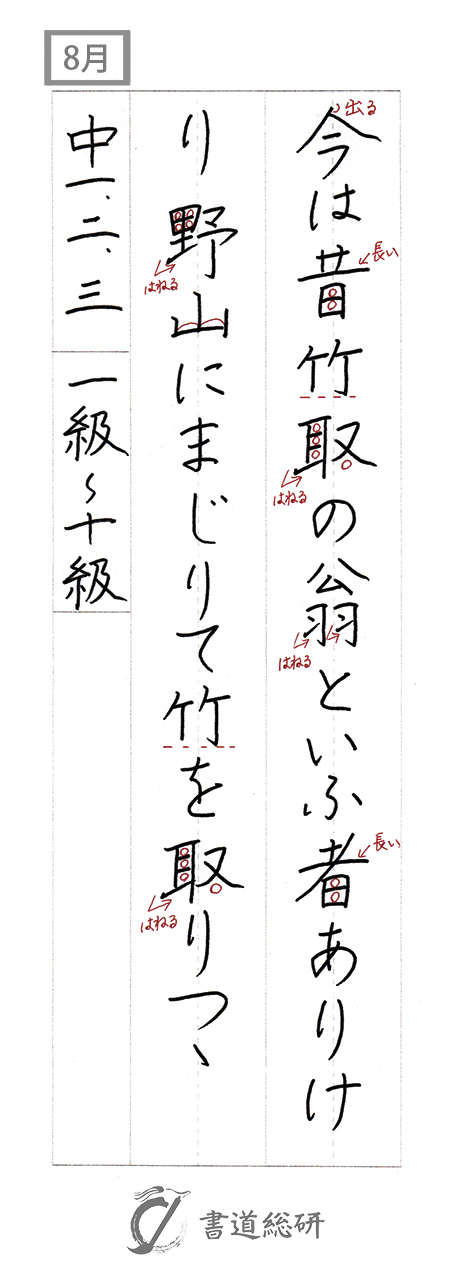 8月
今は昔竹取の翁といふ者ありけ
り野山にまじりて竹を取りつゝ
中一、二、三 一級〜十級
出る
長い
はねる
はねる
長い
はねる
はねる
書道総研